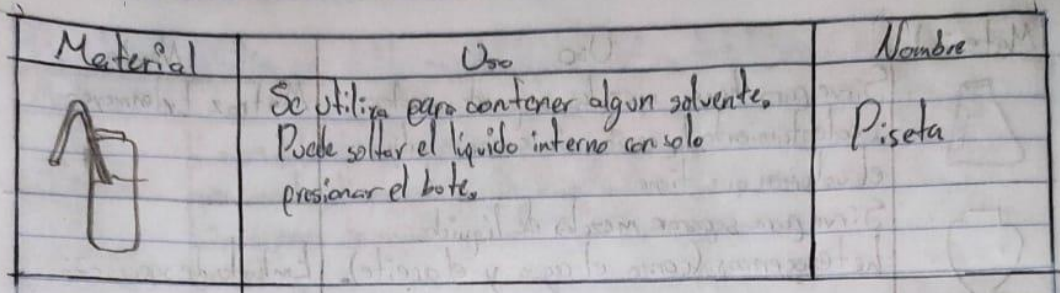 Material Uso Nombre
Se utiliza para contener algun solvente. Piseta
Puede soltar el líquido interno con solo
presionar el bote.